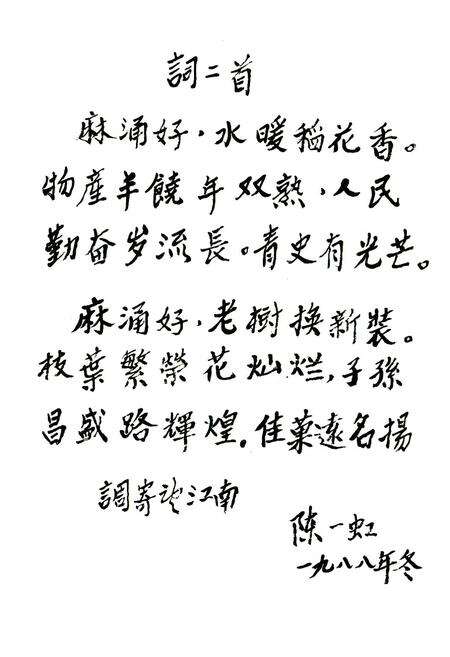 詞二首
麻涌好，水暖稻花香。
物產羊饒年双熟，人民
勤奋岁流長。青史有光芒。
麻涌好，老樹換新裝。
枝葉繁榮花灿烂，子孫
昌盛路輝煌。佳菓遠名揚
調寄望江南
陳一虹
一九八八年冬